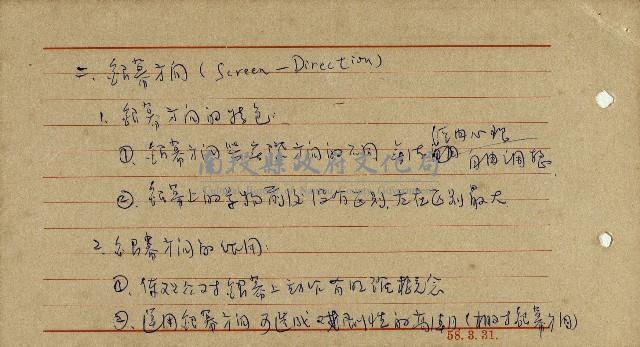 二、銀幕方向(Screen-Direction)
1. 銀幕方向的特色:
①. 銀幕方向與實際方向的不同 無法 自由調整.
經由心理
②. 銀幕上的事物前後沒有区别,左右区别最大
2. 銀幕方向的作用:
①. 使观众对銀幕上动作有明確概念
②. 運用銀幕方向可造成戏剧性的高潮(相对銀幕方向)
南投縣政府文化局
58.3.31.